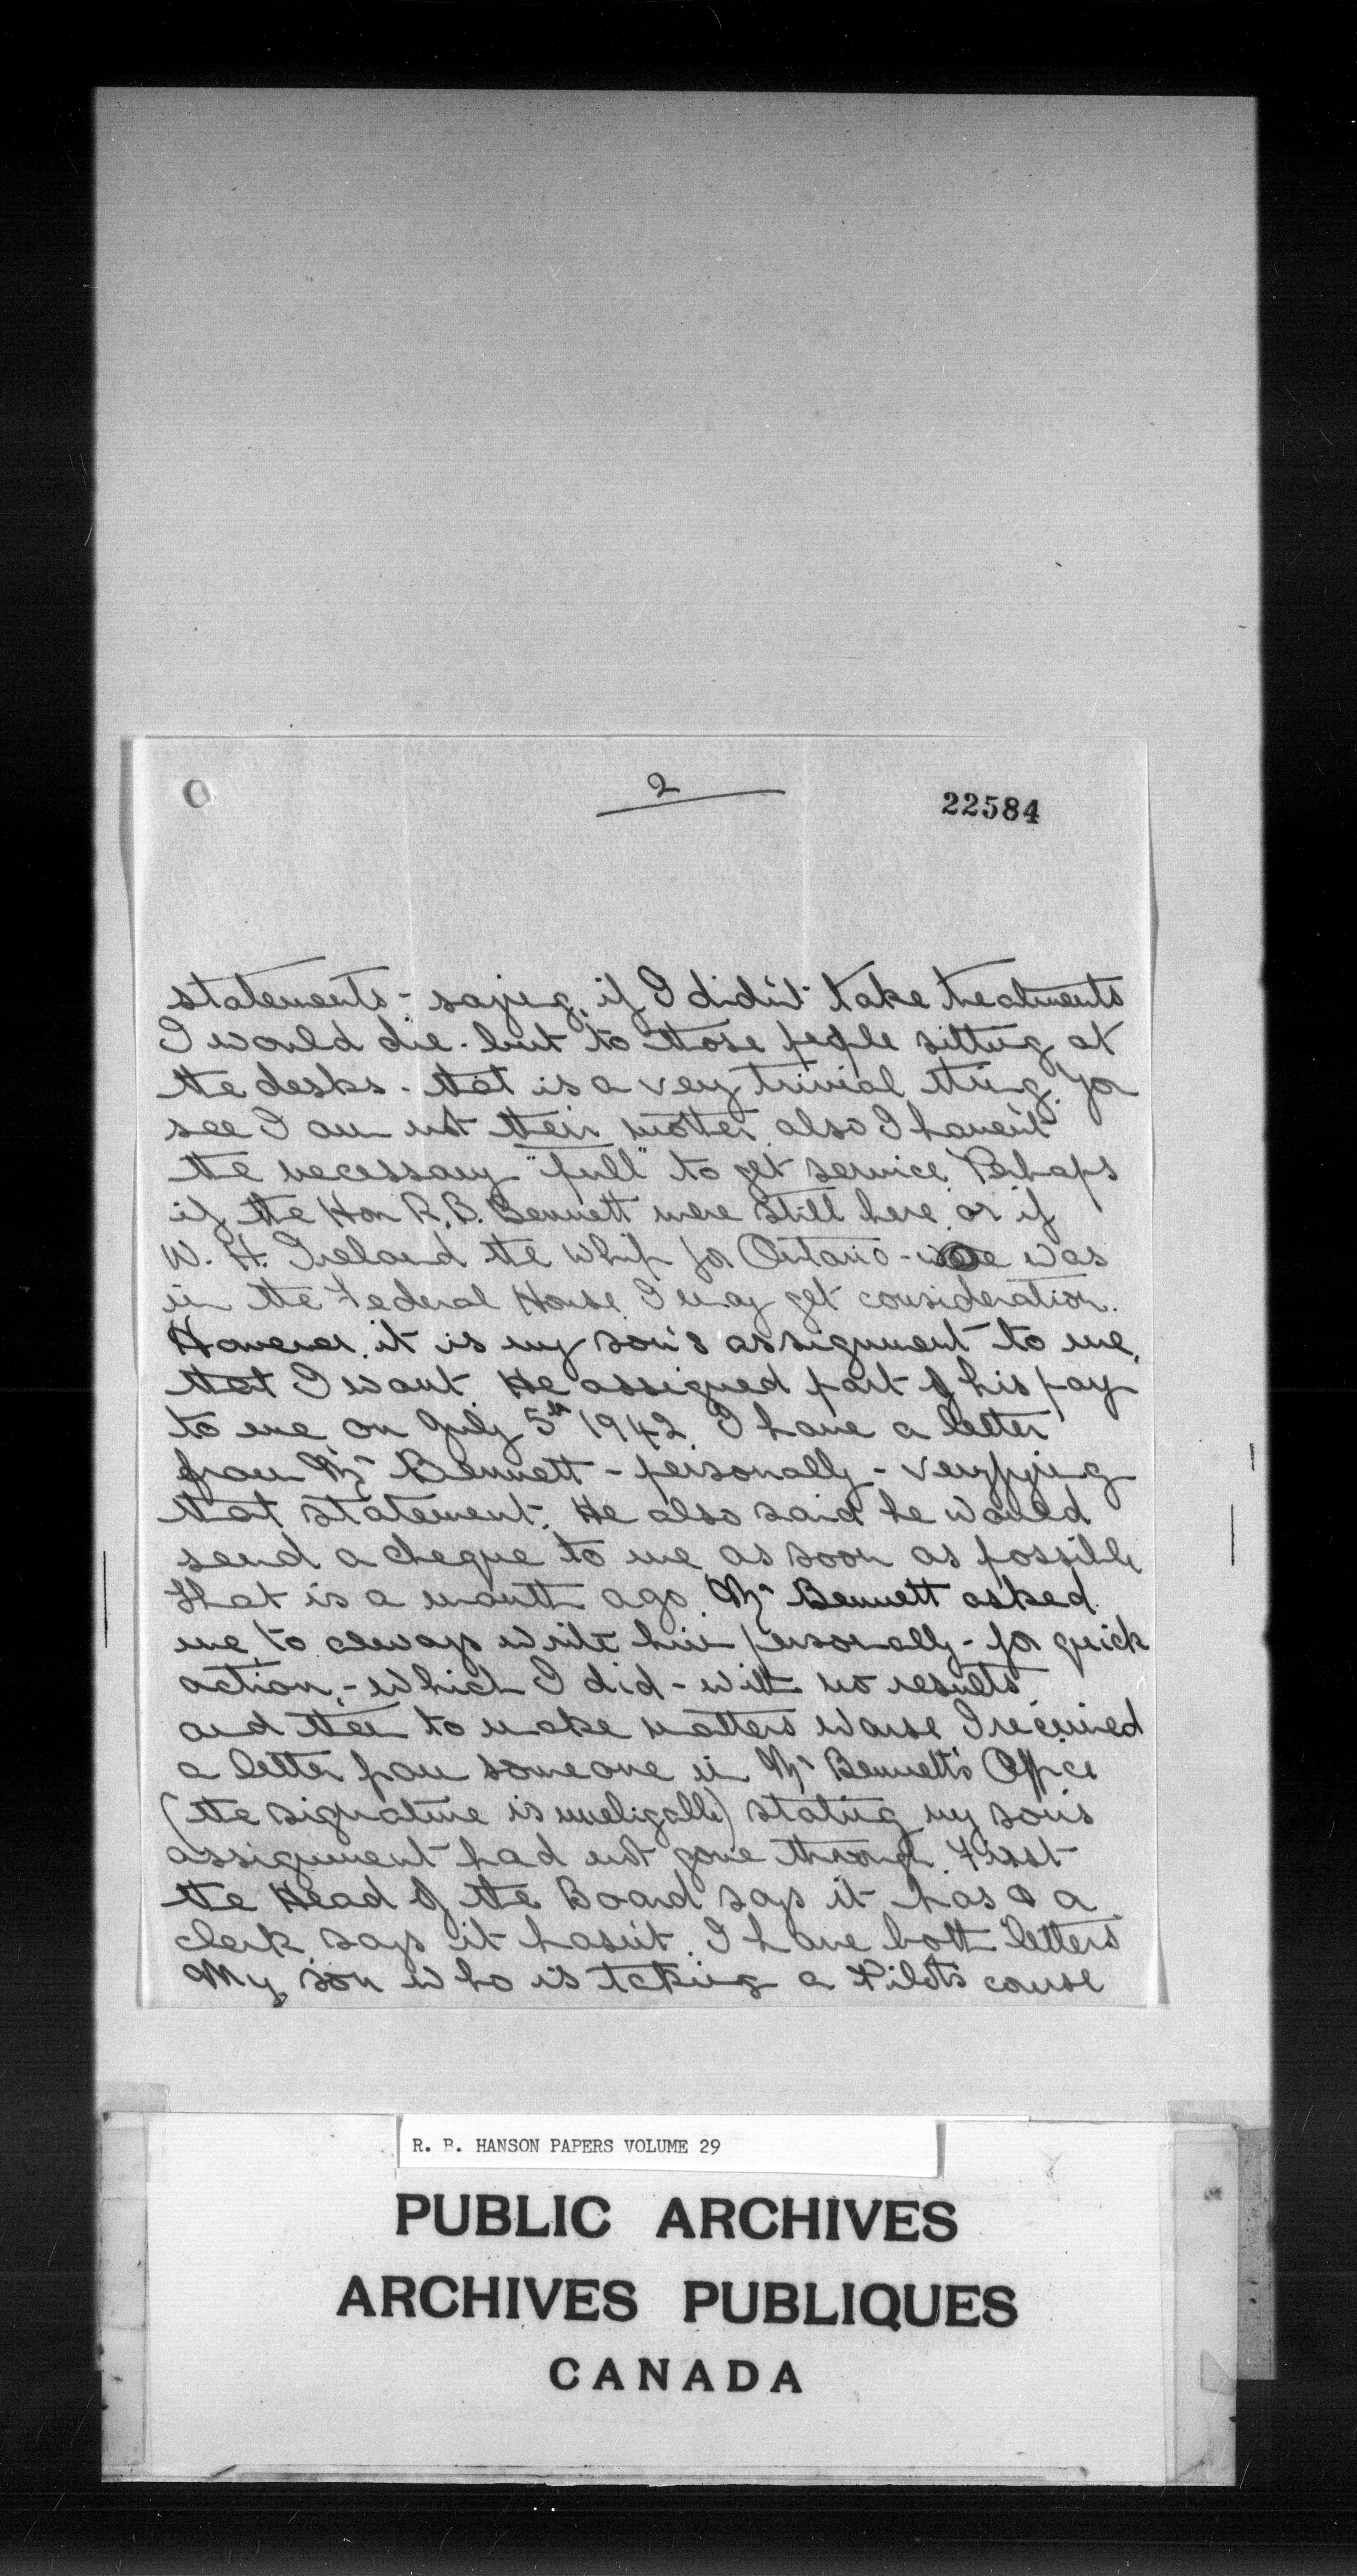 2
22584
statements - saying, if I didn't take treatments
I would die. but to those people sitting at
the desks - that is a very trivial thing. You
see I am not their mother. also I haven't
the necessary "pull" to get service. Perhaps
if the Hon R. B. Bennett were still here, or if
W. H. Ireland the Whip for Ontario - was
in the Federal House I may get consideration.
However, it is my son's assignment to me,
that I want He assigned part of his pay
to me on July 5th 1942. I have a letter
from Mr Bennett - personally - veryfying
that statement. He also said he would
send a cheque to me as soon as possible
that is a month ago. Mr Bennett asked
me, to always write him personally - for quick
action, - which I did - with no results.
and then to make matters worse I received
a letter from someone in Mr Bennett's Office
(the signature is uneligable) stating my son's
assignment had not gone through. First
the Head of the Board says it has & a
clerk says it hasn't. I have both letters
My son who is taking a Pilots course
R. B. HANSON PAPERS VOLUME 29
PUBLIC ARCHIVES
ARCHIVES PUBLIQUES
CANADA